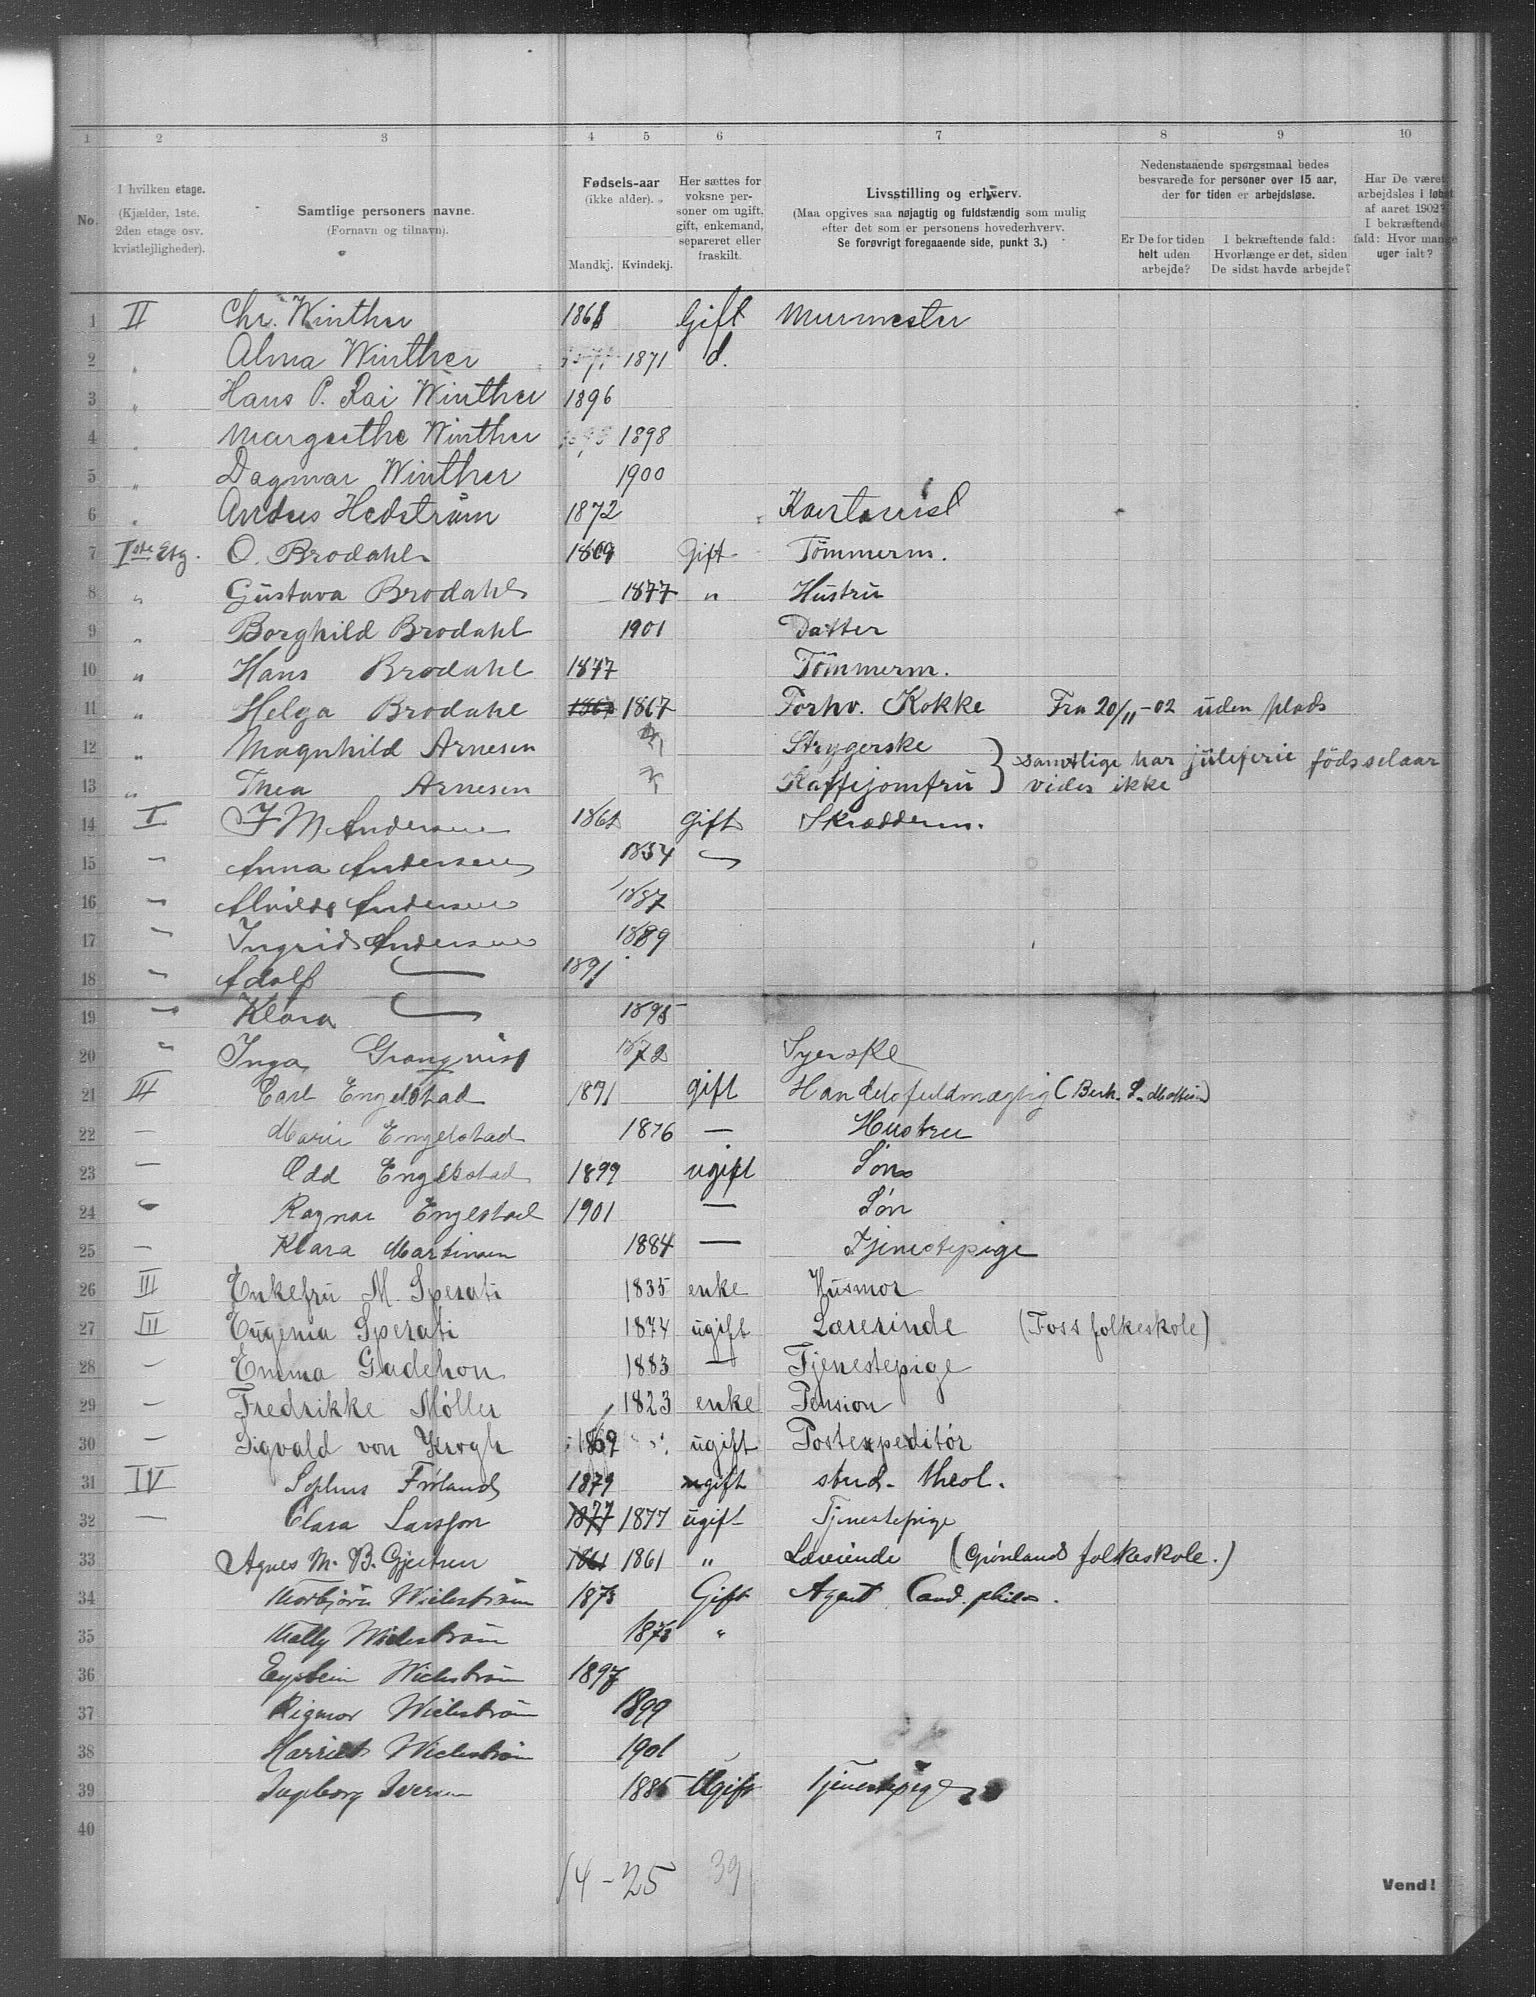 1 2 3 4 5 6 7 8 9 10
No.
I hvilken etage.
(Kjælder, 1ste.
2den etage osv.
kvistlejligheder).
Samtlige personers navne.
(Fornavn og tilnavn).
Fødsels-aar
(ikke alder).
Mandkj. Kvindekj.
Her sættes for
voksne per-
soner om ugift,
gift, enkemand,
separeret eller
fraskilt.
Livsstilling og erhverv.
(Maa opgives saa nøjagtig og fuldstændig som mulig
efter det som er personens hovederhverv.
Se forøvrigt foregaaende side, punkt 3.)
Nedenstaaende spørgsmaal bedes
besvarede for personer over 15 aar,
der for tiden er arbejdsløse.
Er De for tiden
helt uden
arbejde?
I bekræftende fald:
Hvorlænge er det, siden
De sidst havde arbejde?
Har De været
arbejdsløs i løbet
af aaret 1902?
I bekræftende
fald: Hvor mange
uger ialt?
1 II Chr. Winther 1861 Gift Murmester
2 " Alma Winther 1871 d.
3 " Hans P. Kai Winther 1896
4 " Margrethe Winther 1898
5 " Dagmar Winther 1900
6 " Hedström 1872
7 Iste Etg. O. Brodahl 1869 Gift Tömmerm.
8 " Gustava Brodahl 1877 " Hustru
9 " Borghild Brodahl 1901 Datter
10 " Hans Brodahl 1877 Tömmerm.
11 " Helga Brodahl 1867 1867 Forhv. Kokke Fra 20/11-02 uden plads
12 " Magnhild Arnesen Strygerske } samtlige har juleferie födselaar
13 " Thea Arnesen Kaffejomfru } vides ikke
14 I J M Andersen Gift Skrædderm.
15 " Anna Andersen 1854 "
16 " Alvilde Andersen 1887
17 " Ingrid Andersen 1889
18 " Adolf — 1891
19 " Klara — 1895
20 " Inga Granqvist 1872 Syerske
21 II Carl Engelstad 1871 gift Handelsfuldmægtig
22 — Marie Engelstad 1876 — Hustru
23 — Odd Engelstad 1899 ugift Søn
24 " Ragnar Engelstad 1901 — Søn
25 — Klara Martinsen 1884 — Tjenestepige
26 III Enkefru M. Sperati 1835 enke Husmor
27 III Eugenia Sperati 1874 ugift Lærerinde (Foss folkeskole)
28 — Emma Gudehon 1883 — Tjenestepige
29 — Fredrikke Møller 1823 enke Pension
30 — Sigvald von Krogh 1869 ugift Postexpeditör
31 IV Sophus 1879 ugift stud. theol.
32 — Clara Larsson 1877 1877 ugift Tjenestepige
33 Agnes M. B. Gjertsen 1861 1861 " Lærerinde (Grønlands folkeskole.)
34 Thorbjörn Wickström 1873 Gift Agent Cand. philos.
35 Wickström 1873 "
36 Eystein Wickström 1897
37 Rigmor Wickström 1899
38 Harriet Wickström 1901
39 Ingeborg Iversen 1885 Ugift Tjenestepige
40
14 - 25 39
Vend!